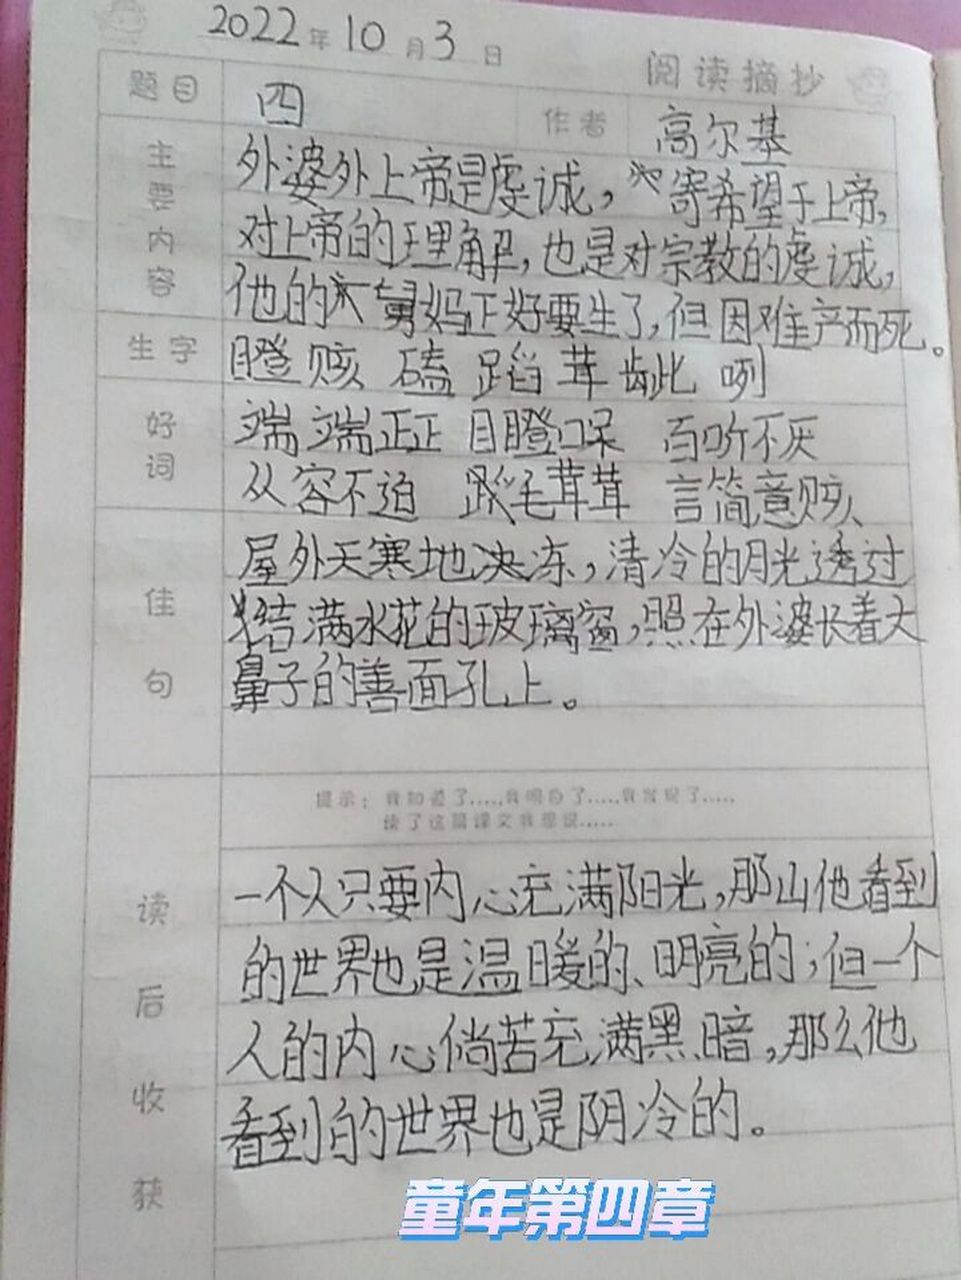 2022年10月3日
阅读摘抄
题目 四 作者 高尔基
主要内容
外婆外上帝是虔诚，寄希望于上帝，
对上帝的理解，也是对宗教的虔诚，
他的舅妈正好要生了，但因难产而死。
生字 瞪 赅 磕 蹈 茸 龇 咧
好词
端端正正 目瞪口呆 百听不厌
从容不迫 毛茸茸 言简意赅
佳句
屋外天寒地冻，清冷的月光透过
结满水花的玻璃窗，照在外婆长着大
鼻子的善面孔上。
提示：我知道了.....我明白了.....我发现了.....
读了这篇课文我想说.....
读后收获
一个人只要内心充满阳光，那山他看到
的世界也是温暖的、明亮的；但一个
人的内心倘苦充满黑暗，那么他
看到的世界也是阴冷的。
童年第四章